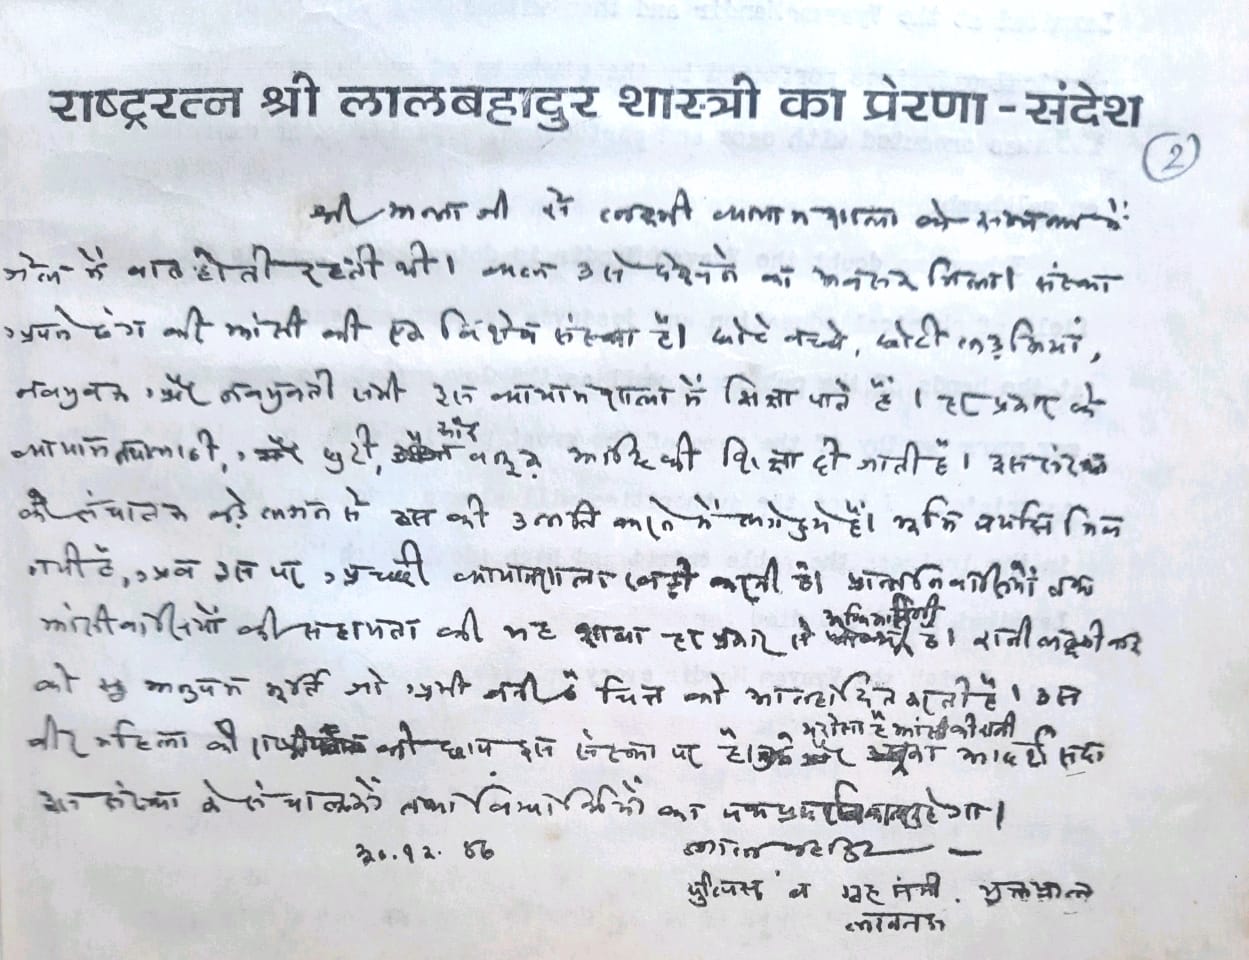 राष्ट्ररत्न श्री लालबहादुर शास्त्री का प्रेरणा - संदेश
2
श्री अन्ना जी से लक्ष्मी व्यायामशाला के सम्बन्ध में
जेल में बात होती रहती थी। आज उसे देखने का अवसर मिला। संस्था
अपने ढंग की झांसी की एक विशेष संस्था है। छोटे बच्चे, छोटी लड़कियां,
नवयुवक और नवयुवती सभी इस व्यायामशाला में शिक्षा पाते हैं। हर प्रकार के
व्यायाम लाठी, छुरी, और बन्दूक आदि की शिक्षा दी जाती है। इस संस्था
के संचालक बड़े लगन से इसकी उन्नति करने में लगे हुये हैं। भूमि
गयी है, अब उस पर अच्छी व्यायामशाला खड़ी करनी है। प्रान्त निवासियों एवं
झांसी वासियों की सहायता की यह संस्था हर प्रकार से अधिकारिणी है। रानी लक्ष्मी बाई
की अनुपम मूर्ति जो अभी बनी है चित्त को आल्हादित करती है। उस
वीर महिला की छाप इस संस्था पर है। मुझे भरोसा है झांसी की रानी का आदर्श सदा
इस संस्था के संचालकों तथा विद्यार्थियों का पथ प्रदर्शित करता रहेगा।
२०.१२. ५६
लालबहादुर
पुलिस व गृह मंत्री. युक्तप्रान्त
लखनऊ